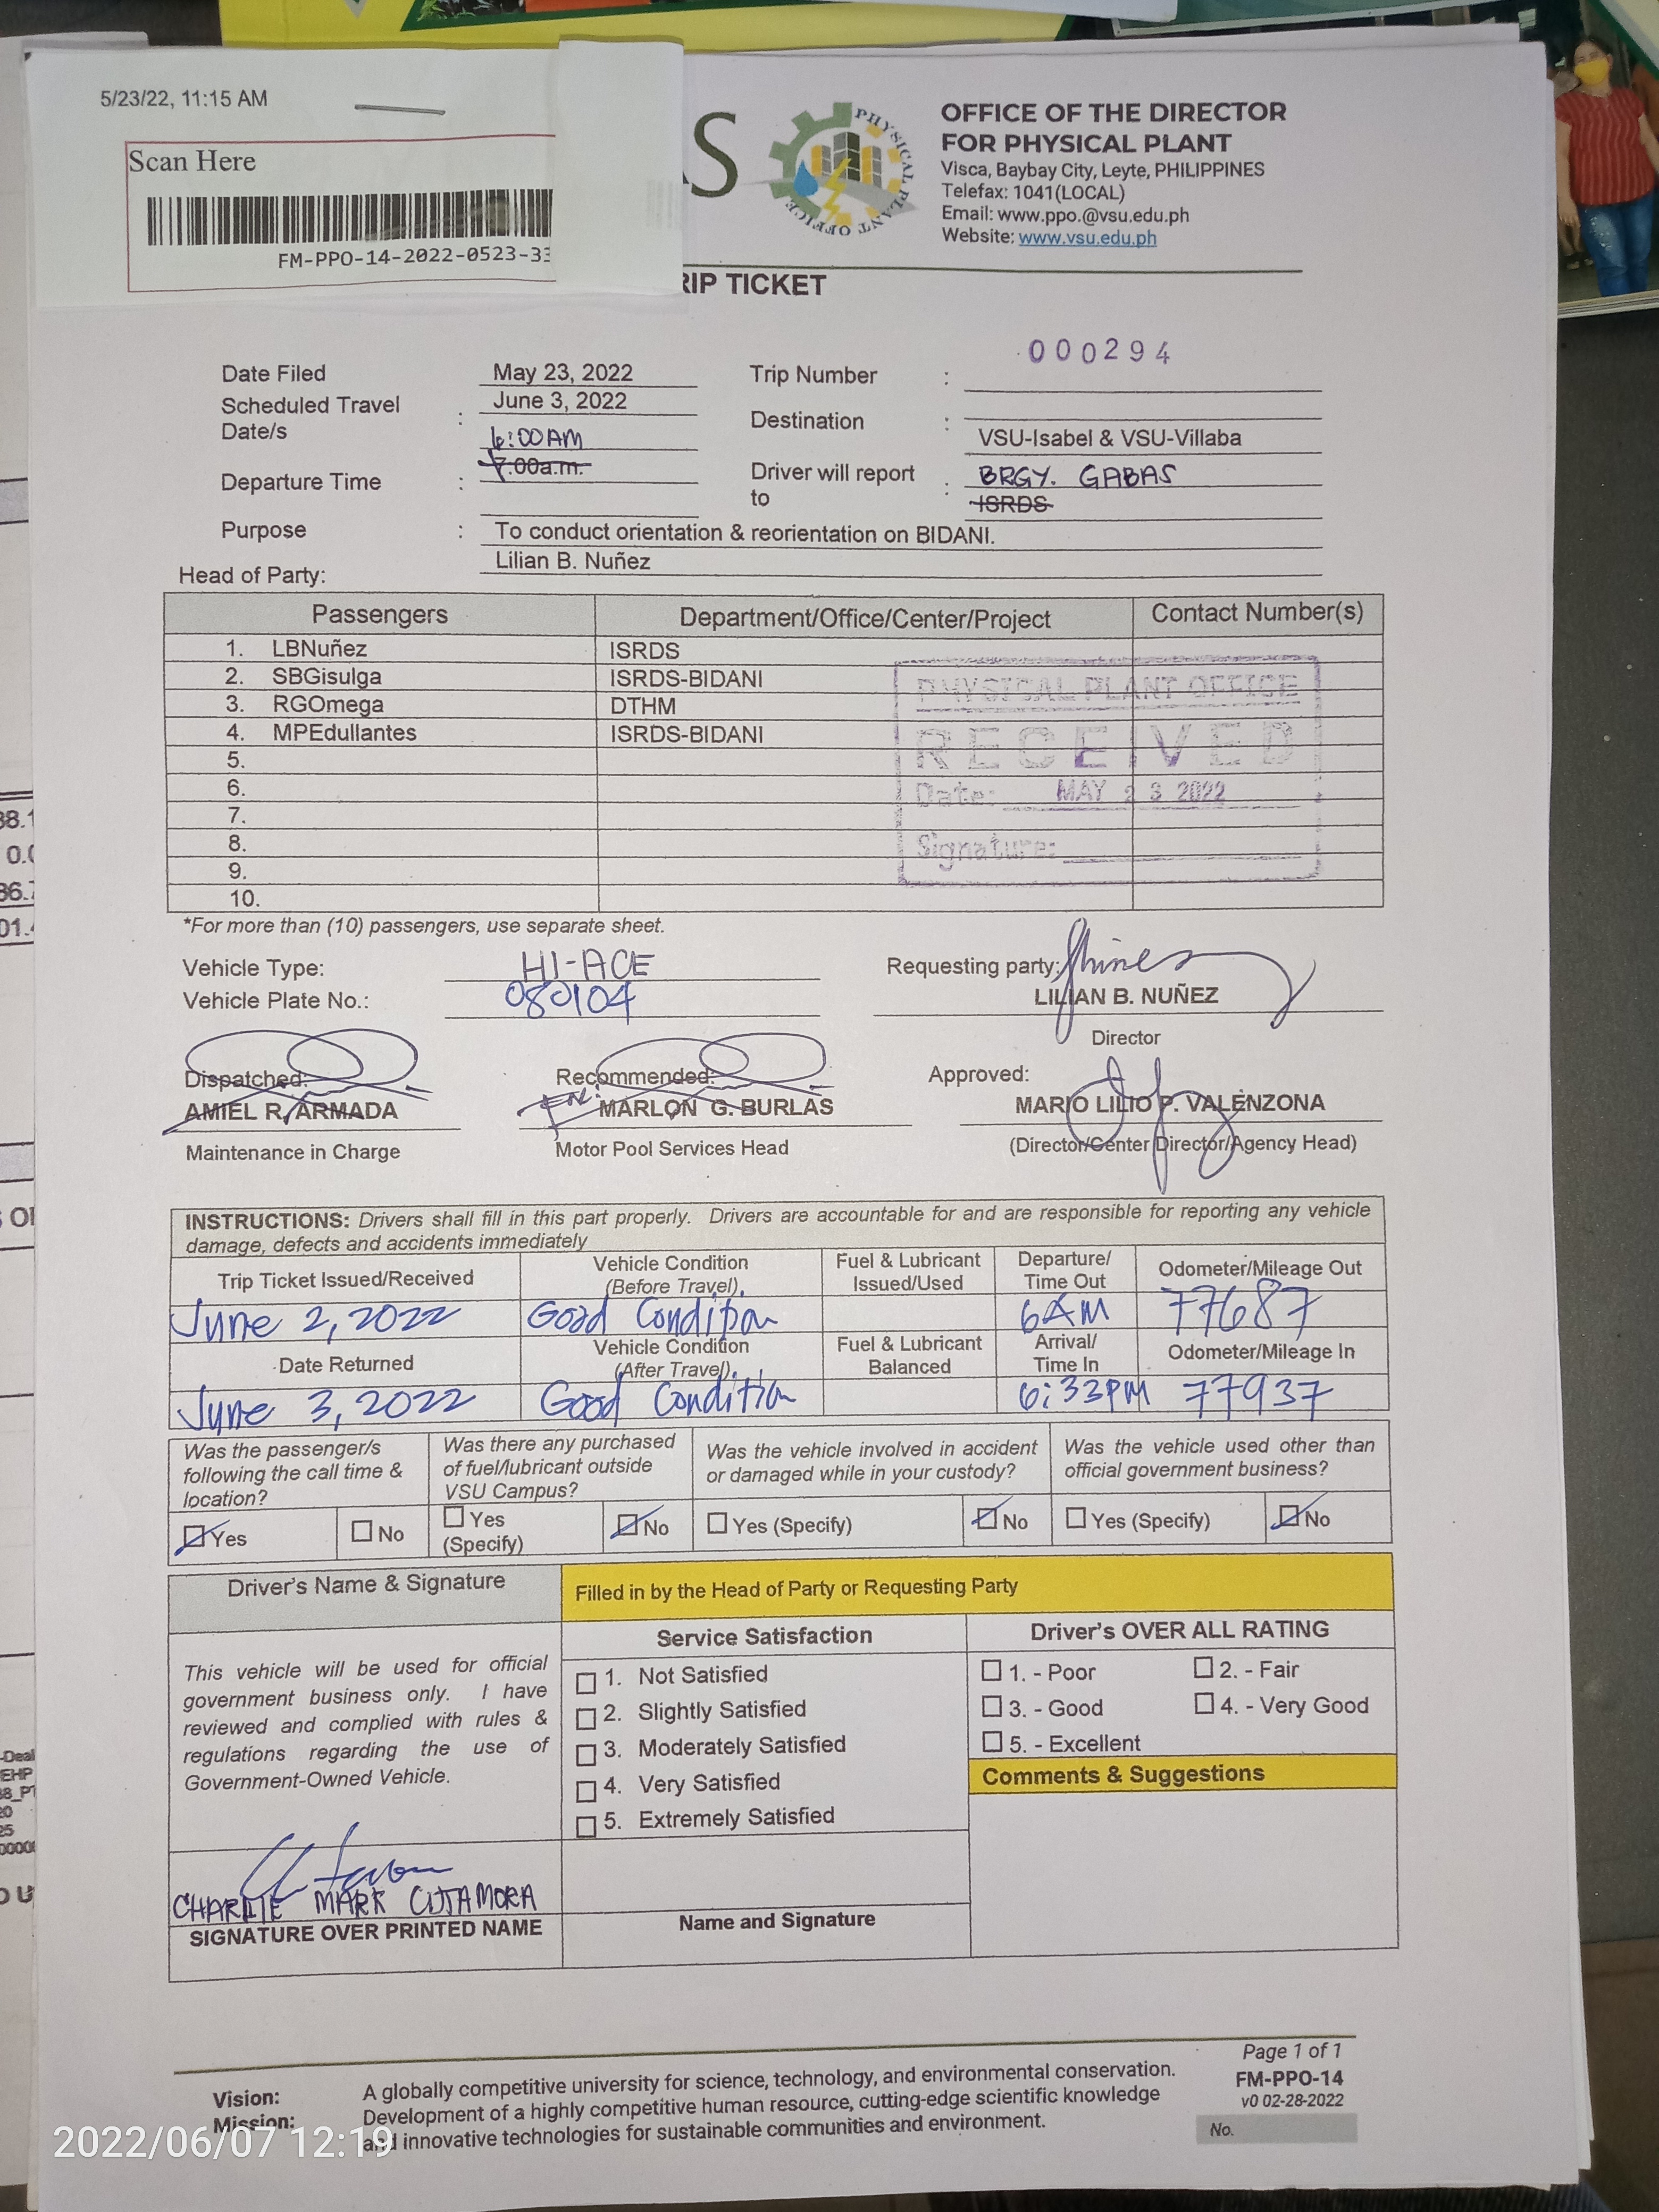 5/23/22, 11:15 AM
Scan Here
FM-PPO-14-2022-0523-33
S
PHYSICAL PLANT OFFICE
OFFICE OF THE DIRECTOR
FOR PHYSICAL PLANT
Visca, Baybay City, Leyte, PHILIPPINES
Telefax: 1041(LOCAL)
Email: www.ppo.@vsu.edu.ph
Website: www.vsu.edu.ph
RIP TICKET
000294
Date Filed May 23, 2022 Trip Number :
Scheduled Travel Date/s : June 3, 2022 Destination : VSU-Isabel & VSU-Villaba
6:00AM
Departure Time : 7:00a.m. Driver will report to : BRGY. GABAS
ISRDS
Purpose : To conduct orientation & reorientation on BIDANI.
Head of Party: Lilian B. Nuñez
Passengers Department/Office/Center/Project Contact Number(s)
1. LBNuñez ISRDS
2. SBGisulga ISRDS-BIDANI
3. RGOmega DTHM
4. MPEdullantes ISRDS-BIDANI
5.
6.
7.
8.
9.
10.
PHYSICAL PLANT OFFICE
RECEIVED
Date: MAY 23 2022
Signature:
*For more than (10) passengers, use separate sheet.
Vehicle Type: HI-ACE Requesting party:
Vehicle Plate No.: 080104 LILIAN B. NUÑEZ
Director
Dispatched: Recommended: Approved:
AMIEL R. ARMADA For: MARLON G. BURLAS MARIO LILIO P. VALENZONA
Maintenance in Charge Motor Pool Services Head (Director/Center Director/Agency Head)
INSTRUCTIONS: Drivers shall fill in this part properly. Drivers are accountable for and are responsible for reporting any vehicle
damage, defects and accidents immediately
Trip Ticket Issued/Received Vehicle Condition (Before Travel) Fuel & Lubricant Issued/Used Departure/ Time Out Odometer/Mileage Out
June 2, 2022 Good Condition 6AM 77687
Date Returned Vehicle Condition (After Travel) Fuel & Lubricant Balanced Arrival/ Time In Odometer/Mileage In
June 3, 2022 Good Condition 6:33PM 77937
Was the passenger/s following the call time & location? Was there any purchased of fuel/lubricant outside VSU Campus? Was the vehicle involved in accident or damaged while in your custody? Was the vehicle used other than official government business?
Yes No Yes (Specify) No Yes (Specify) No Yes (Specify) No
Driver's Name & Signature Filled in by the Head of Party or Requesting Party
Service Satisfaction Driver's OVER ALL RATING
This vehicle will be used for official
government business only. I have
reviewed and complied with rules &
regulations regarding the use of
Government-Owned Vehicle.
1. Not Satisfied
2. Slightly Satisfied
3. Moderately Satisfied
4. Very Satisfied
5. Extremely Satisfied
1. - Poor 2. - Fair
3. - Good 4. - Very Good
5. - Excellent
Comments & Suggestions
CHARLIE MARK CIJAMORA
SIGNATURE OVER PRINTED NAME Name and Signature
Vision: A globally competitive university for science, technology, and environmental conservation.
Mission: Development of a highly competitive human resource, cutting-edge scientific knowledge
and innovative technologies for sustainable communities and environment.
Page 1 of 1
FM-PPO-14
v0 02-28-2022
No.
2022/06/07 12:19